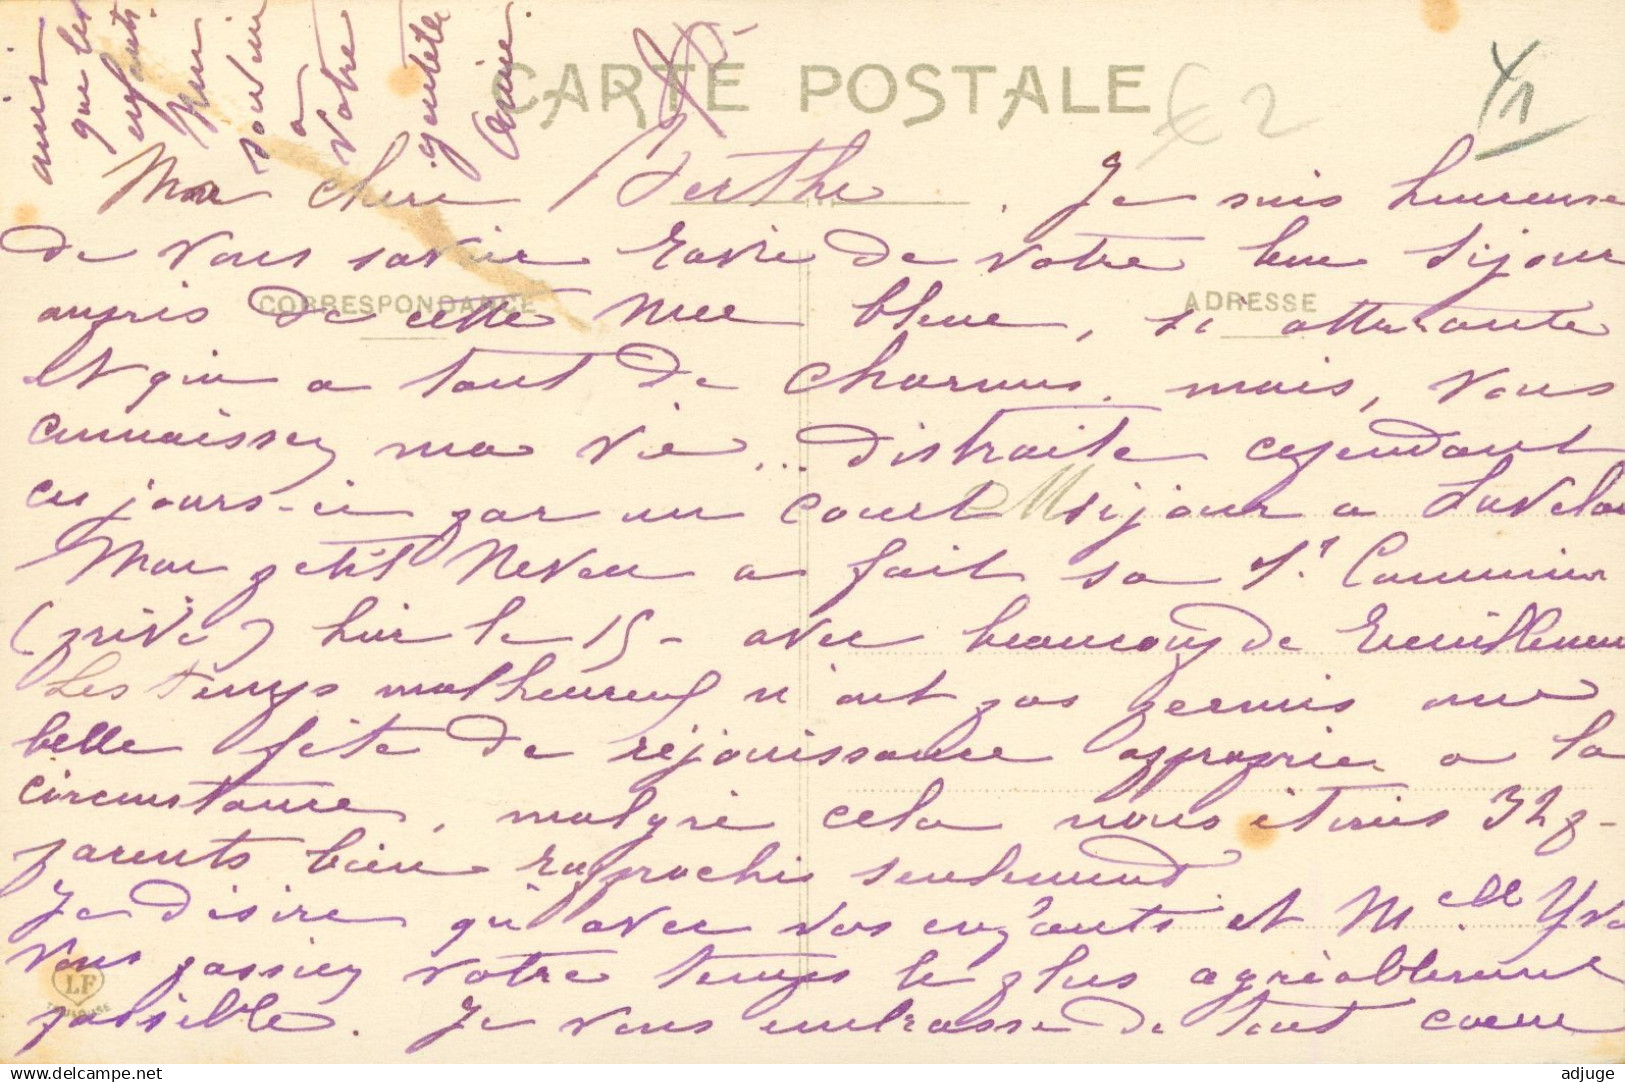 CARTE POSTALE
€ 2
Ma chère Berthe. Je suis heureuse
de vous savoir ravie de votre bon séjour
CORRESPONDANCE
ADRESSE
auprès de cette mer bleue, si attirante
et qui a tant de charmes, mais, vous
connaissez ma vie... distraite cependant
ces jours-ci par un court séjour a Lavelan
Mon petit Neveu a fait sa 1r Communion
(privée) hier le 15 - avec beaucoup de recueillement
Les temps malheureux n'ont pas permis une
belle fête de réjouissance appropriée a la
circonstance, malgré cela nous étions 32 p-
parents bien rapprochés seulement
Je désire qu'avec vos enfants et Melle Yvo
vous passiez votre temps le plus agréablement
LF
TOULOUSE
possible. Je vous embrasse de tout coeur
ainsi
que les
enfants.
Mon
souvenir
a
votre
gentille
Amie.